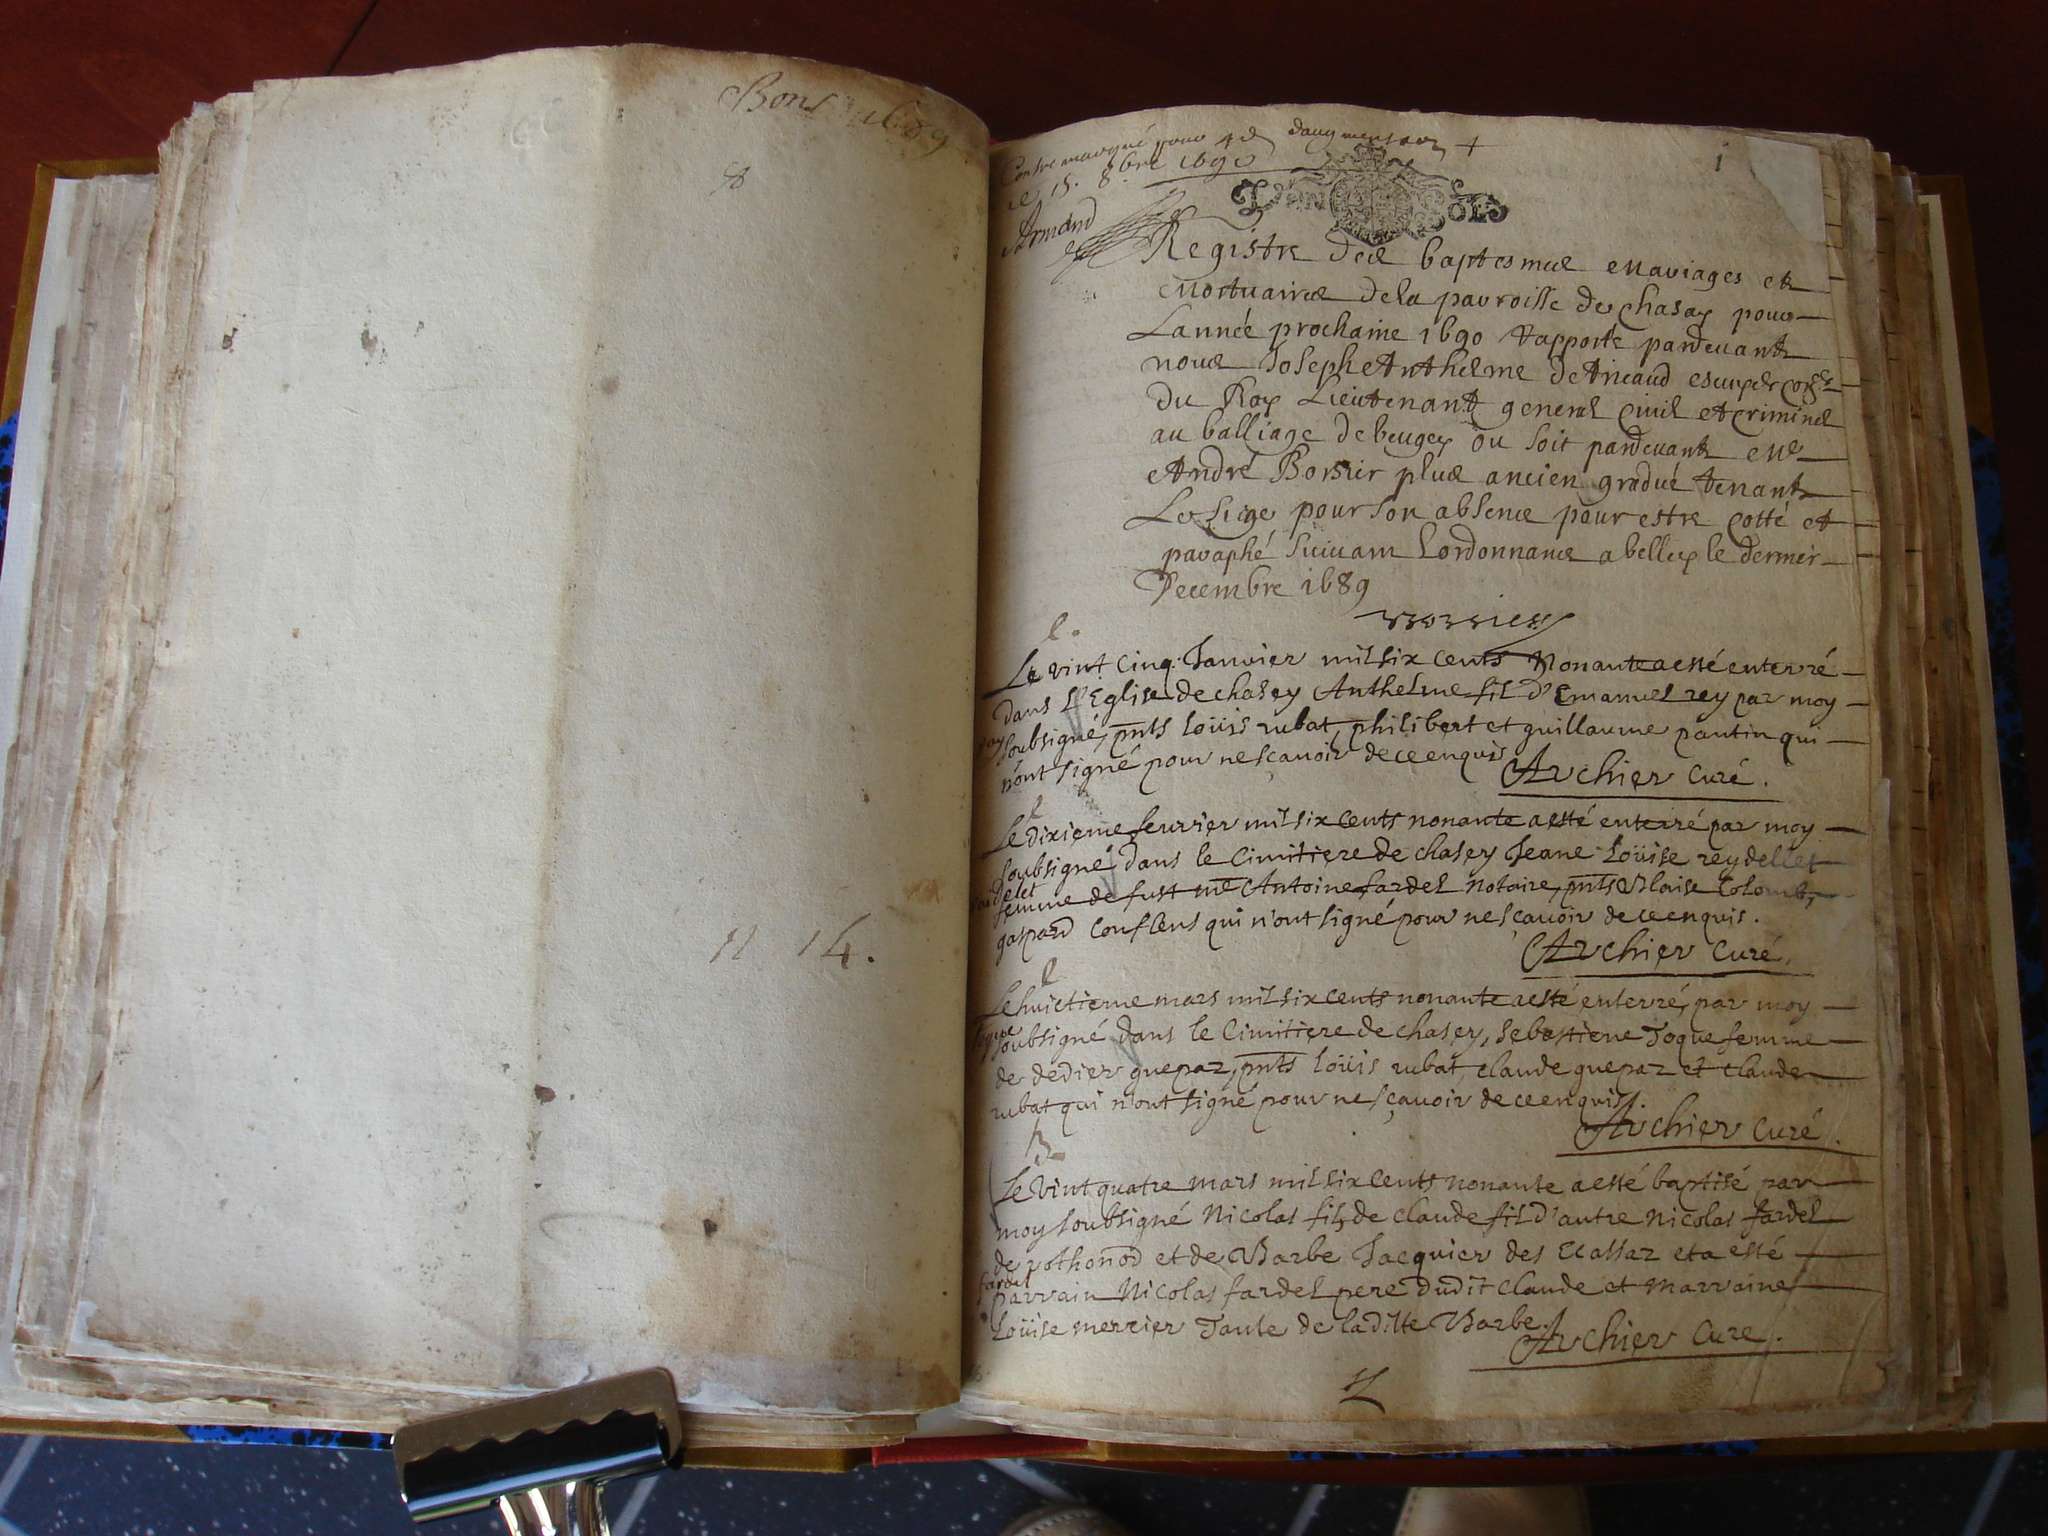 Bons 1689
n 14.
Contre marqué pour 4 d daugmentaon +
le 15. 8bre 1690
Armand
1
Registre des baptesmes mariages et
mortuaires de la parroisse de chasey pour
Lannée prochaine 1690 rapporté pardevant
nous Joseph Anthelme de Arcaud escuyer conser
du Roy Lieutenant general civil et criminel
au balliage de beugey ou soit pardevant me
André Borssier plus ancien gradué tenant
Le siege pour son absence pour estre cotté et
paraphé suivant Lordonnance a belley le dernier
Decembre 1689
l.
Le vint cinq Janvier mil six cents Nonante a esté enterré
dans l'Eglise de chasey Anthelme fil d'Emanuel rey par moy
rey
soubsigné, pnts Loüis rubat, philibert et guillaume pantin qui
n'ont signé pour ne sçavoir de ce enquis
Archier Curé.
l
Le dixieme fevrier mil six cents nonante a esté enterré par moy
soubsigné dans le Cimitiere de chasey Jeane Loüise reydellet
femme de fust me Antoine fardel Notaire, pnts Blaise Colomb,
gaspard Conflens qui n'ont signé pour ne sçavoir de ce enquis.
Archier Curé.
l
Le huictieme mars mil six cents nonante a esté enterré, par moy
Joque
soubsigné dans le Cimitiere de chasey, Sebastiene Joque femme
de dedier guepaz, pnts Loüis rubat, claude guepaz et claude
rubat qui n'ont signé pour ne sçavoir de ce enquis.
Archier Curé.
B
Le vint quatre mars mil six cents nonante a esté baptisé par
moy soubsigné Nicolas filz de claude fil d'autre Nicolas fardel
de rothonod et de Barbe Jacquier des Ecassaz et a esté
fardel
parrain Nicolas fardel pere dudit claude et marraine
Loüise mercier Tante de laditte Barbe.
Archier Curé.